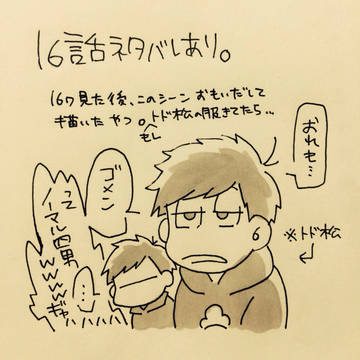 16話ネタバレあり。
167 見た後、このシーン おもいだして
描いた やつ。トド松の服きてたら…
もし
おれも…
ゴメン
って
ノーマル四男
wwwww
ギャハハハハ
…
※トド松